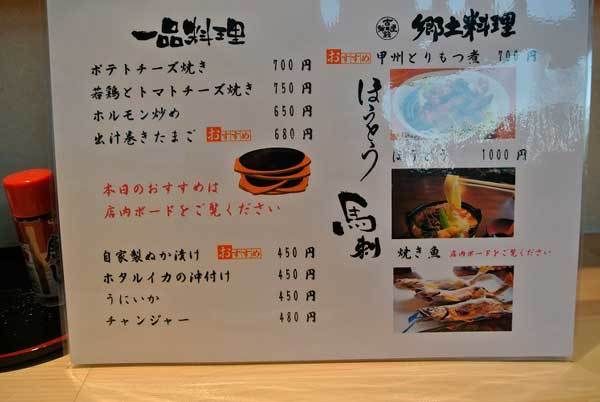 一品料理
ポテトチーズ焼き 700円
若鶏とトマトチーズ焼き 750円
ホルモン炒め 650円
出汁巻きたまご おすすめ 680円
本日のおすすめは
店内ボードをご覧ください
自家製ぬか漬け おすすめ 450円
ホタルイカの沖付け 450円
うにいか 450円
チャンジャー 480円
郷土料理
おすすめ 甲州とりもつ煮 700円
ほうとう
ほうとう 1000円
馬刺
焼き魚 店内ボードをご覧ください